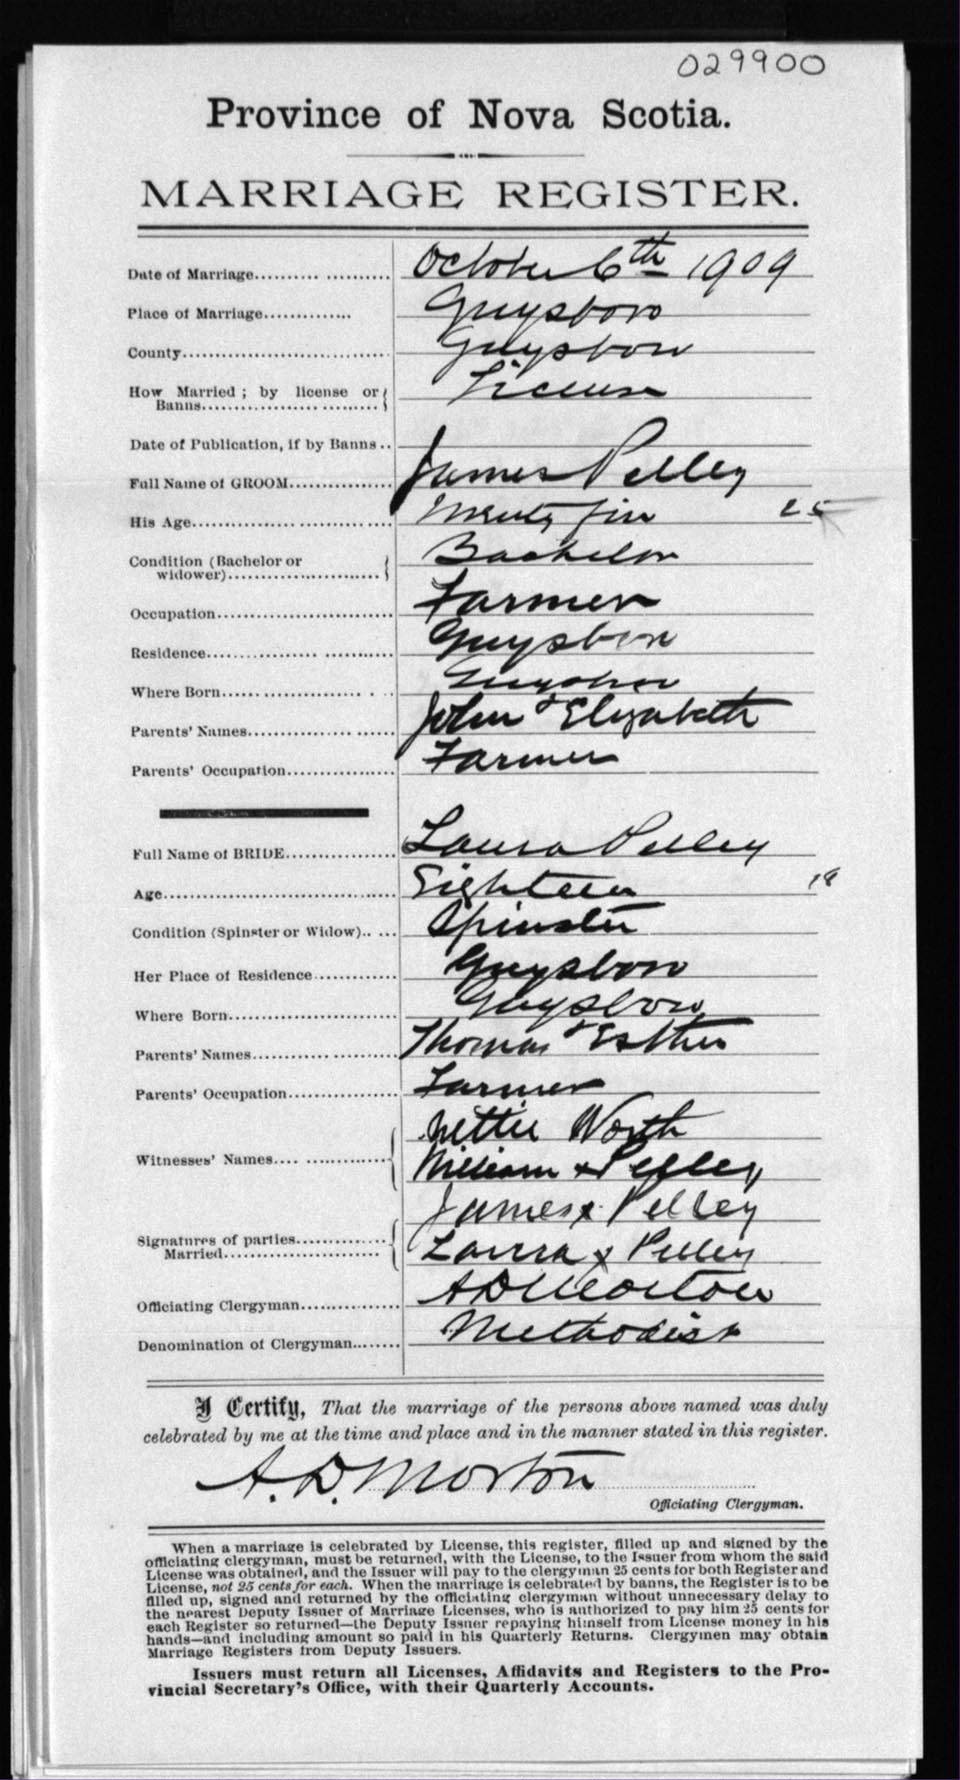 029900
Province of Nova Scotia.
MARRIAGE REGISTER.
Date of Marriage.......... ........... October 6th 1909
Place of Marriage.............. Guysboro
County................................ Guysboro
How Married ; by license or License
Banns................... ..........
Date of Publication, if by Banns ..
Full Name of GROOM................ James Pelley
His Age................................ Twenty five 25
Condition (Bachelor or Bachelor
widower)............................
Occupation............................ Farmer
Residence................. ........... Guysboro
Where Born...... ................ . . . Guysboro
Parents' Names................. ...... John & Elizabeth
Parents' Occupation................. Farmer
Full Name of BRIDE................ Laura Pelley
Age..................................... Eighteen 18
Condition (Spinster or Widow).. ... Spinster
Her Place of Residence............. Guysboro
Where Born.......................... Guysboro
Parents' Names............ .......... Thomas & Esther
Parents' Occupation................. Farmer
Nettie Worth
Witnesses' Names.... ............... William x Pelley
James x Pelley
Signatures of parties..............
Married......................... Laura x Pelley
Officiating Clergyman............... A D Morton
Denomination of Clergyman........ Methodist
I Certify, That the marriage of the persons above named was duly
celebrated by me at the time and place and in the manner stated in this register.
A. D. Morton
Officiating Clergyman.
When a marriage is celebrated by License, this register, filled up and signed by the
officiating clergyman, must be returned, with the License, to the Issuer from whom the said
License was obtained, and the Issuer will pay to the clergyman 25 cents for both Register and
License, not 25 cents for each. When the marriage is celebrated by banns, the Register is to be
filled up, signed and returned by the officiating clergyman without unnecessary delay to
the nearest Deputy Issuer of Marriage Licenses, who is authorized to pay him 25 cents for
each Register so returned—the Deputy Issuer repaying himself from License money in his
hands—and including amount so paid in his Quarterly Returns. Clergymen may obtain
Marriage Registers from Deputy Issuers.
Issuers must return all Licenses, Affidavits and Registers to the Pro-
vincial Secretary's Office, with their Quarterly Accounts.